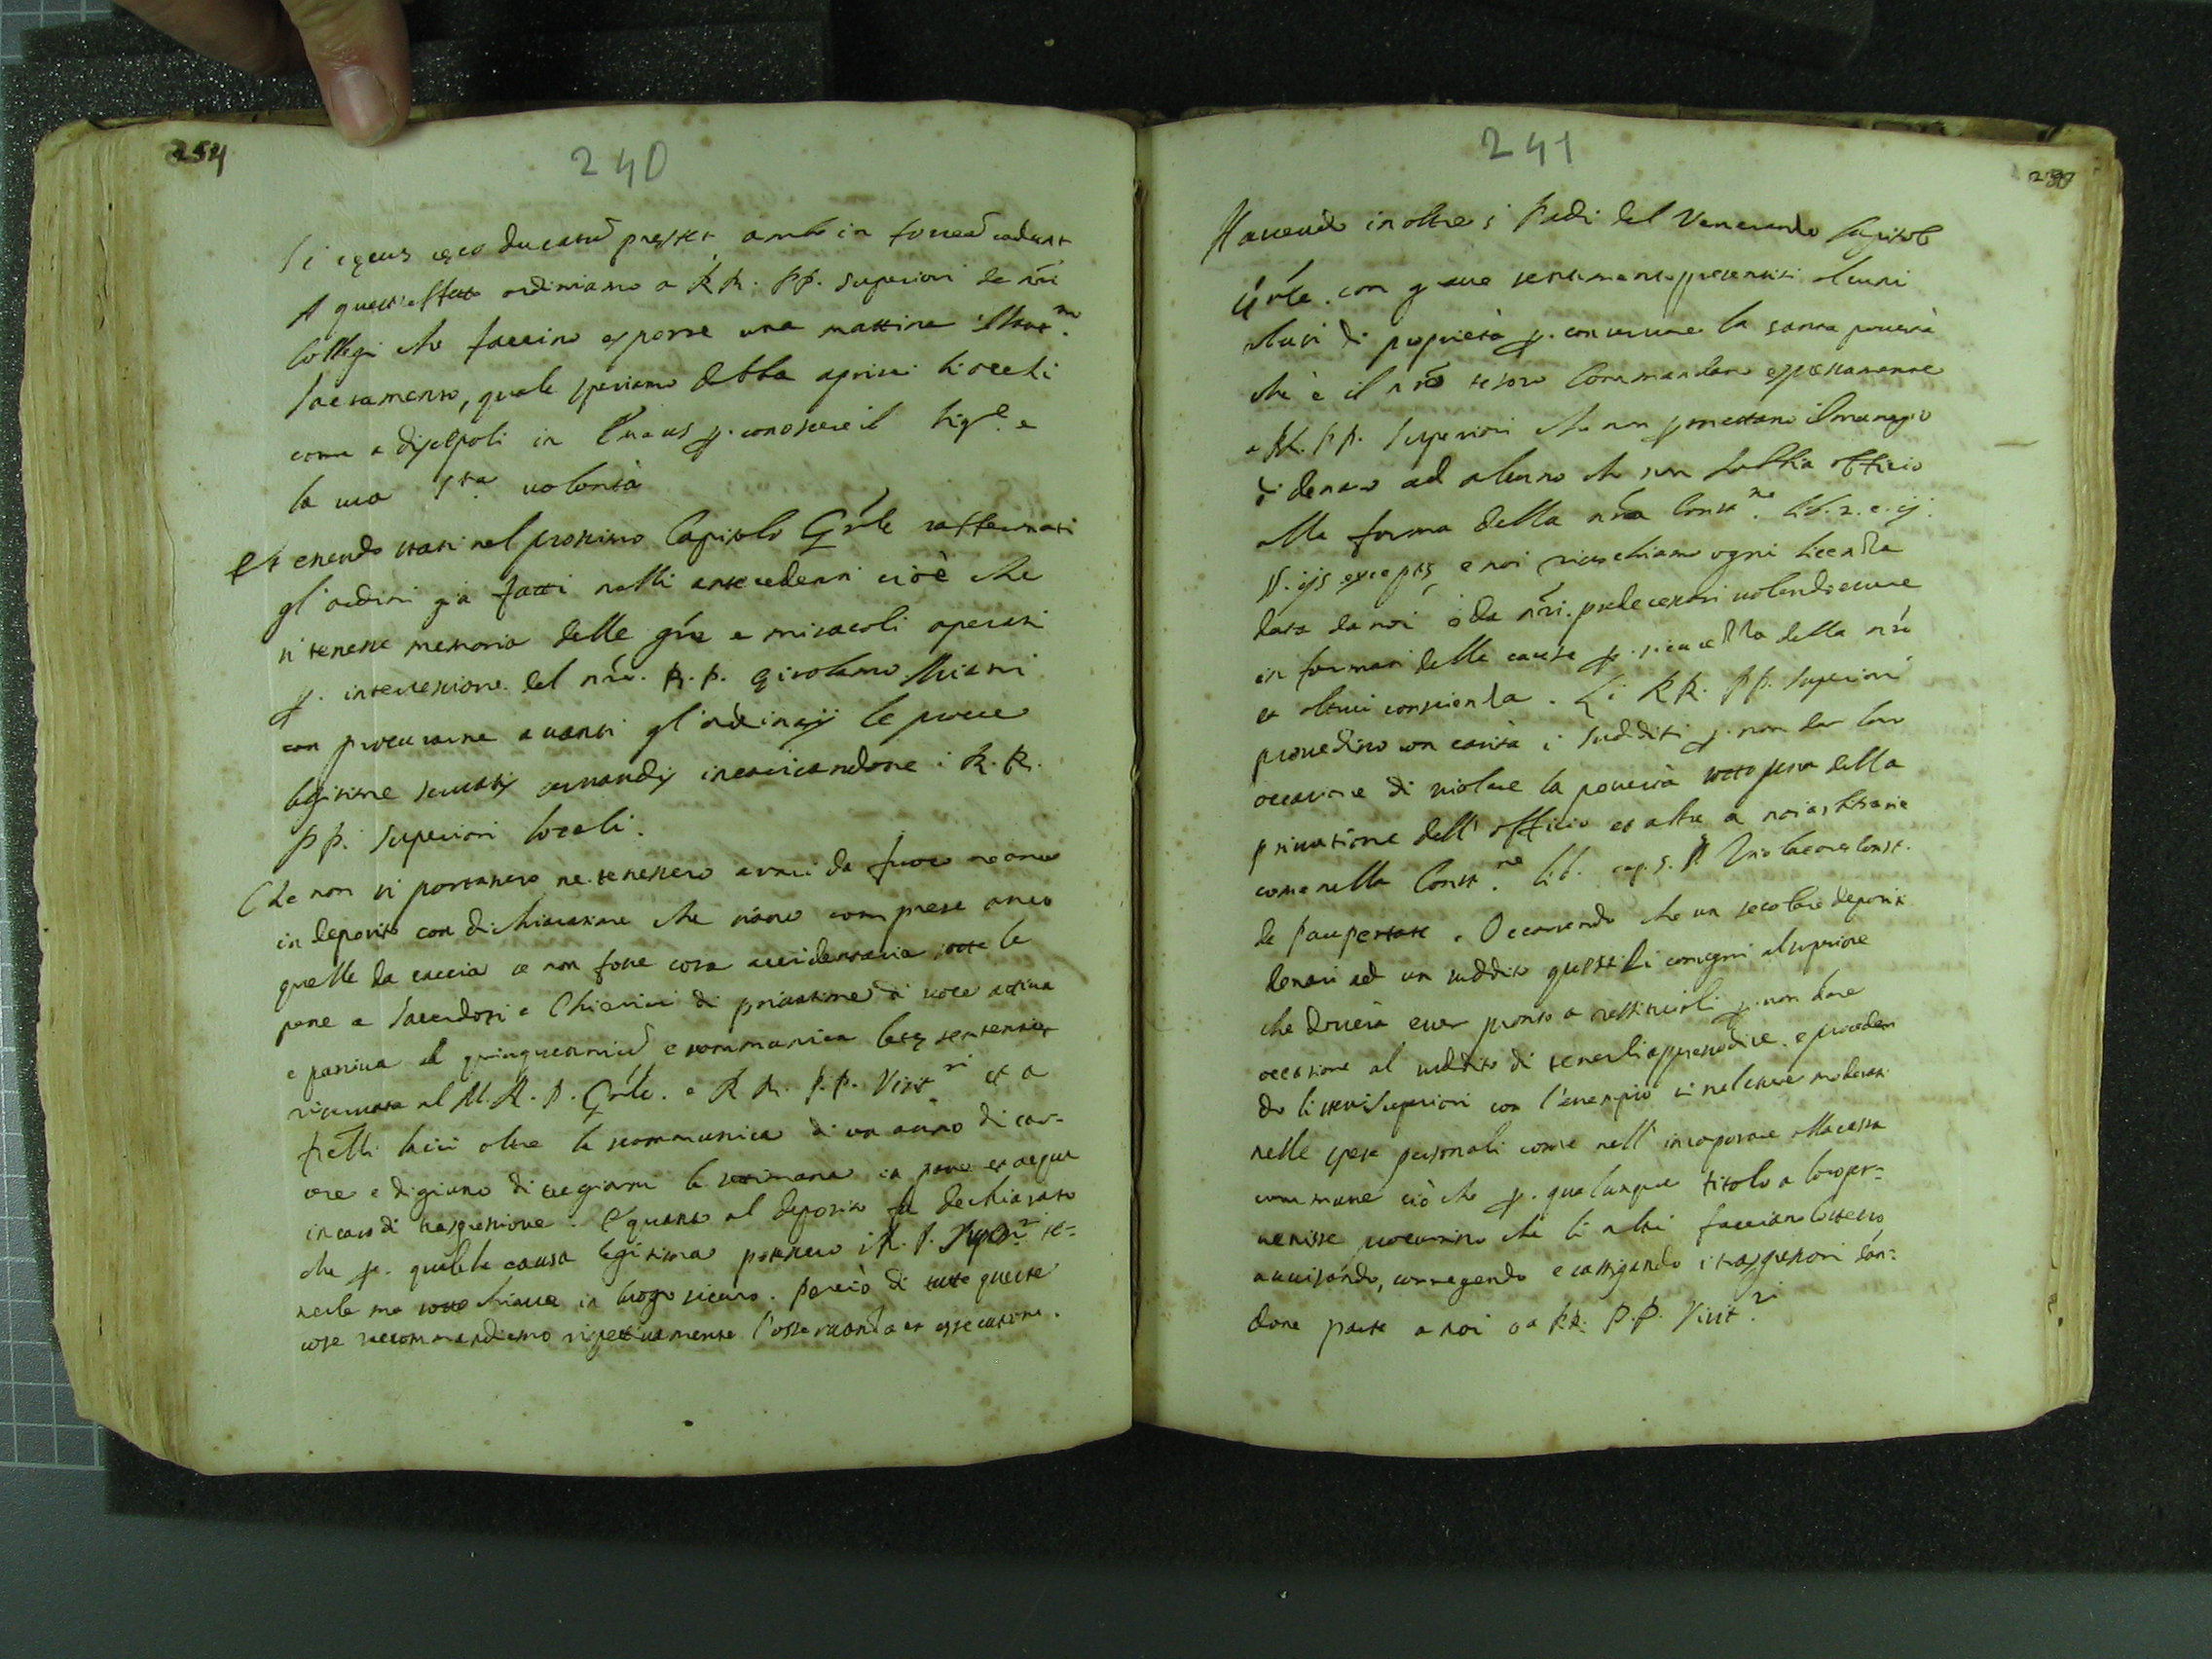 254
240
Si cęcus cęco ducatū prestet ambo in foueā cadunt
A quest'effetto ordiniamo a RR. PP. Superiori de nr̃i
Collegi che faccino esporre una mattina il
Sacramento, quale speriamo debba aprirci li occhi
come a discepoli in Emaus p. conoscere il e
la sua S.ta uolontà
Et essendo stati nel prossimo Capitolo Gñle raffermati
gl'ordini già fatti nelli antecedenti cioè che
si tenesse memoria delle gr̃e e miracoli operati
p. intercessione del nr̃o. R. P. Girolamo Miani
con procurarne auanti gl'ordinarij le proue
legitime seruatis seruandis incaricandone i R.R.
PP. Superiori locali.
Che non si portassero ne tenessero armi da fuoco ne anco
in deposito con dichiaratione che siano comprese anco
quelle da caccia se non fosse cosa accidentaria sotto le
pene a Sacerdoti e Chierici di priuatione di uoce attiua
e passiua p quinquenniū e scommunica latę sententię
riseruata al M. R. P. Gñle. e R R. P.P. Visit.ri et a
fr̃elli laici oltre la scommunica di un anno di car-
cere e digiuno di tre giorni la settimana in pane et acqua
in caso di trasgressione. E quanto al deposito fu dechiarato
che p. qualche causa legitima potessero i R. P. Super.ri te-
nerle ma sotto chiaue in luogo sicuro. Perciò di tutte queste
cose raccommandiamo rispettiuamente l'osseruanza et essecutione.
241
Hauendo inoltre i Padri del Venerando Capitolo
Gñle. con graue sentimento presentiti alcuni
abusi di proprietà p. conseruare la santa pouertà
che è il nr̃o tesoro Commandano espressamente
a RR. PP. Superiori che non pmettano il maneggio
di denaro ad alcuno che non habbia officio
alla forma della nr̃a Const.ne Lib. 2. c. ij.
§. ijs exceptis, e noi riuochiamo ogni licenza
data da noi ò da nr̃i. predecessori uolendo essere
informati delle cause p. sicurezza della nr̃a
et altrui conscienza. Li RR. PP. Superiori
prouedino con carità i sudditi p. non dar loro
occasione di uiolare la pouertà sotto pena della
priuatione dell'officio et altre a noi arbitrarie
come nella Const.ne Lib. cap. 5. §. Violatores Const.
de Paupertate. Occorrendo che un secolare depositi
denari ad un suddito questi li consegni al superiore
che douerà esser pronto a restituirli p. non dare
occasione al suddito di tenerli appresso di se. e procedan-
do li stessi Superiori con l'essempio si nel essere moderati
nelle spese personali come nell'incorporare alla cassa
commune ciò che p. qualunque titolo a loro per-
uenisse procurino che li altri facciano l'istesso,
auuisando, corregendo e castigando i trasgressori dan-
done parte a noi o a RR. P.P. Visit.ri